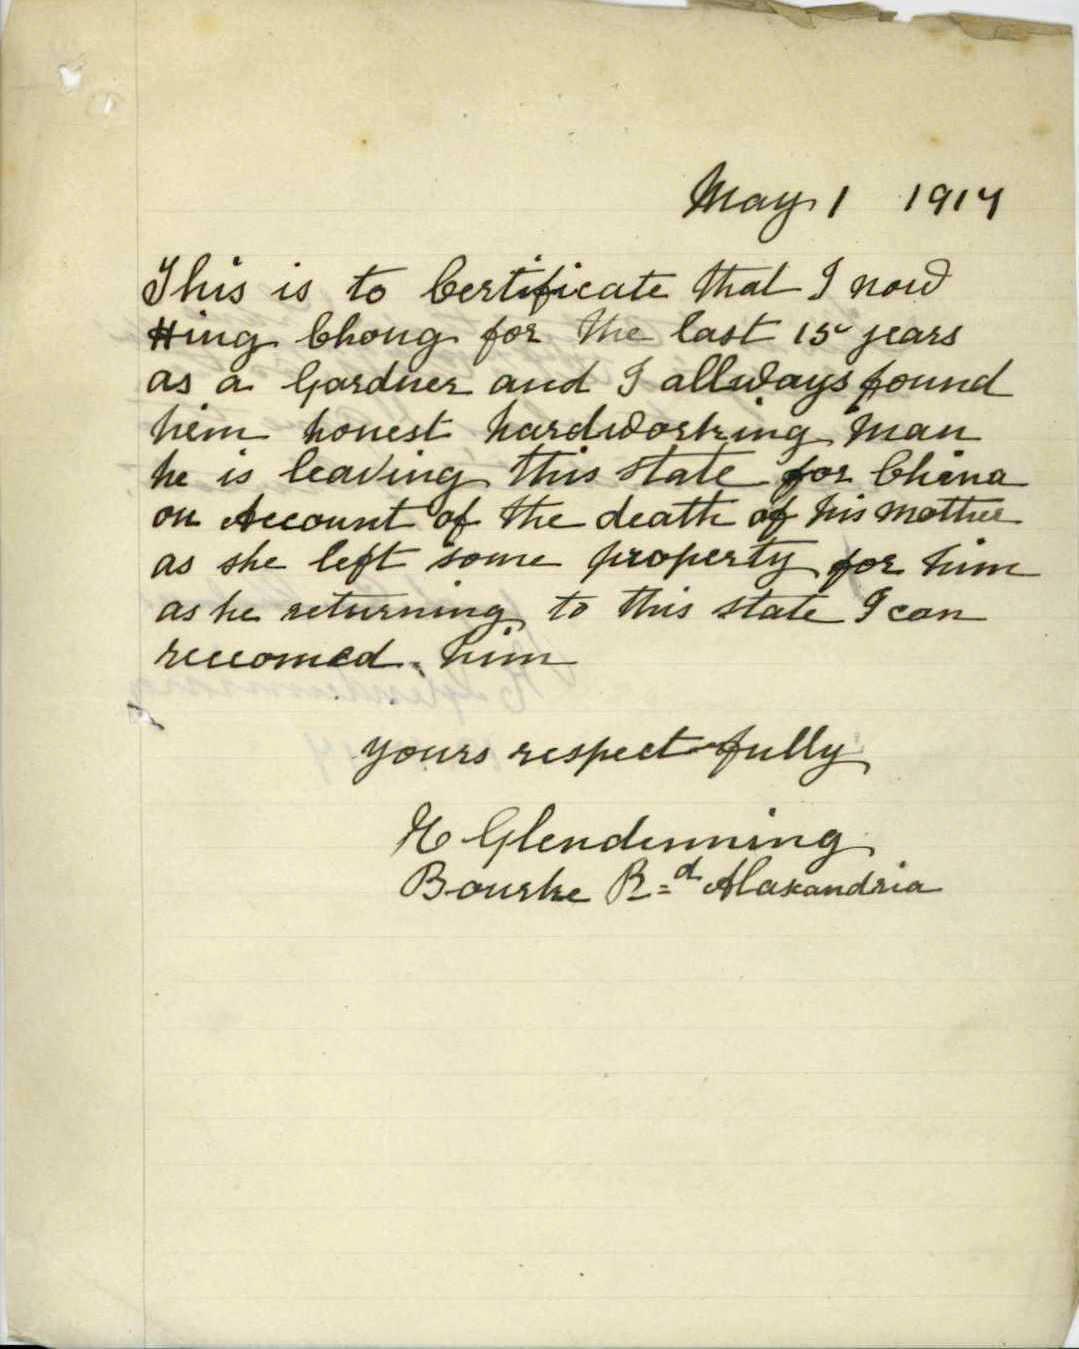 May 1 1914
This is to Certificate that I now
Hing Chong for the last 15 years
as a Gardner and I allways found
him honest hardworking man
he is leaving this state for China
on Account of the death of his mother
as she left some property for him
as he returning to this state I can
reccomed him
yours respectfully
H Glendinning
Bourke Rd Alaxandria